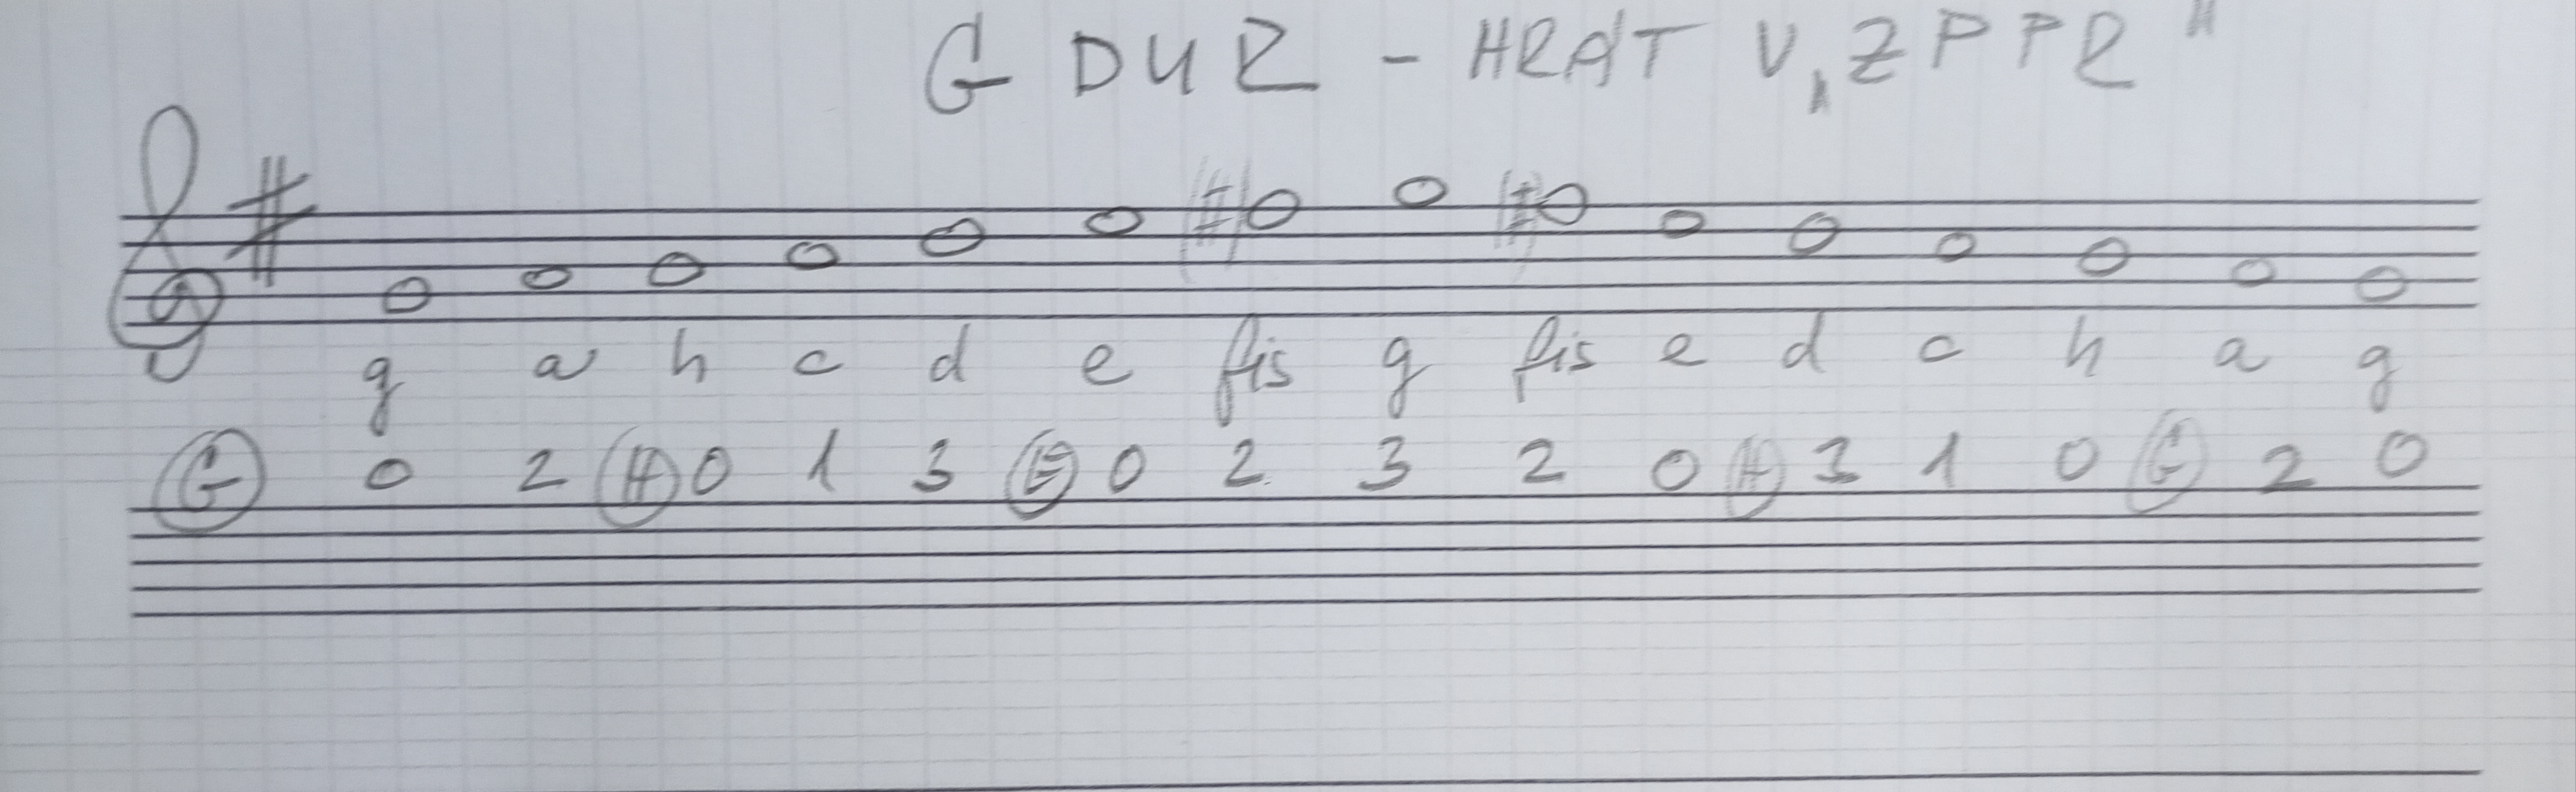 G DUR - HRÁT V „ZPPR"
g a h c d e fis g fis e d c h a g
G 0 2 H 0 1 3 E 0 2 3 2 0 H 3 1 0 G 2 0